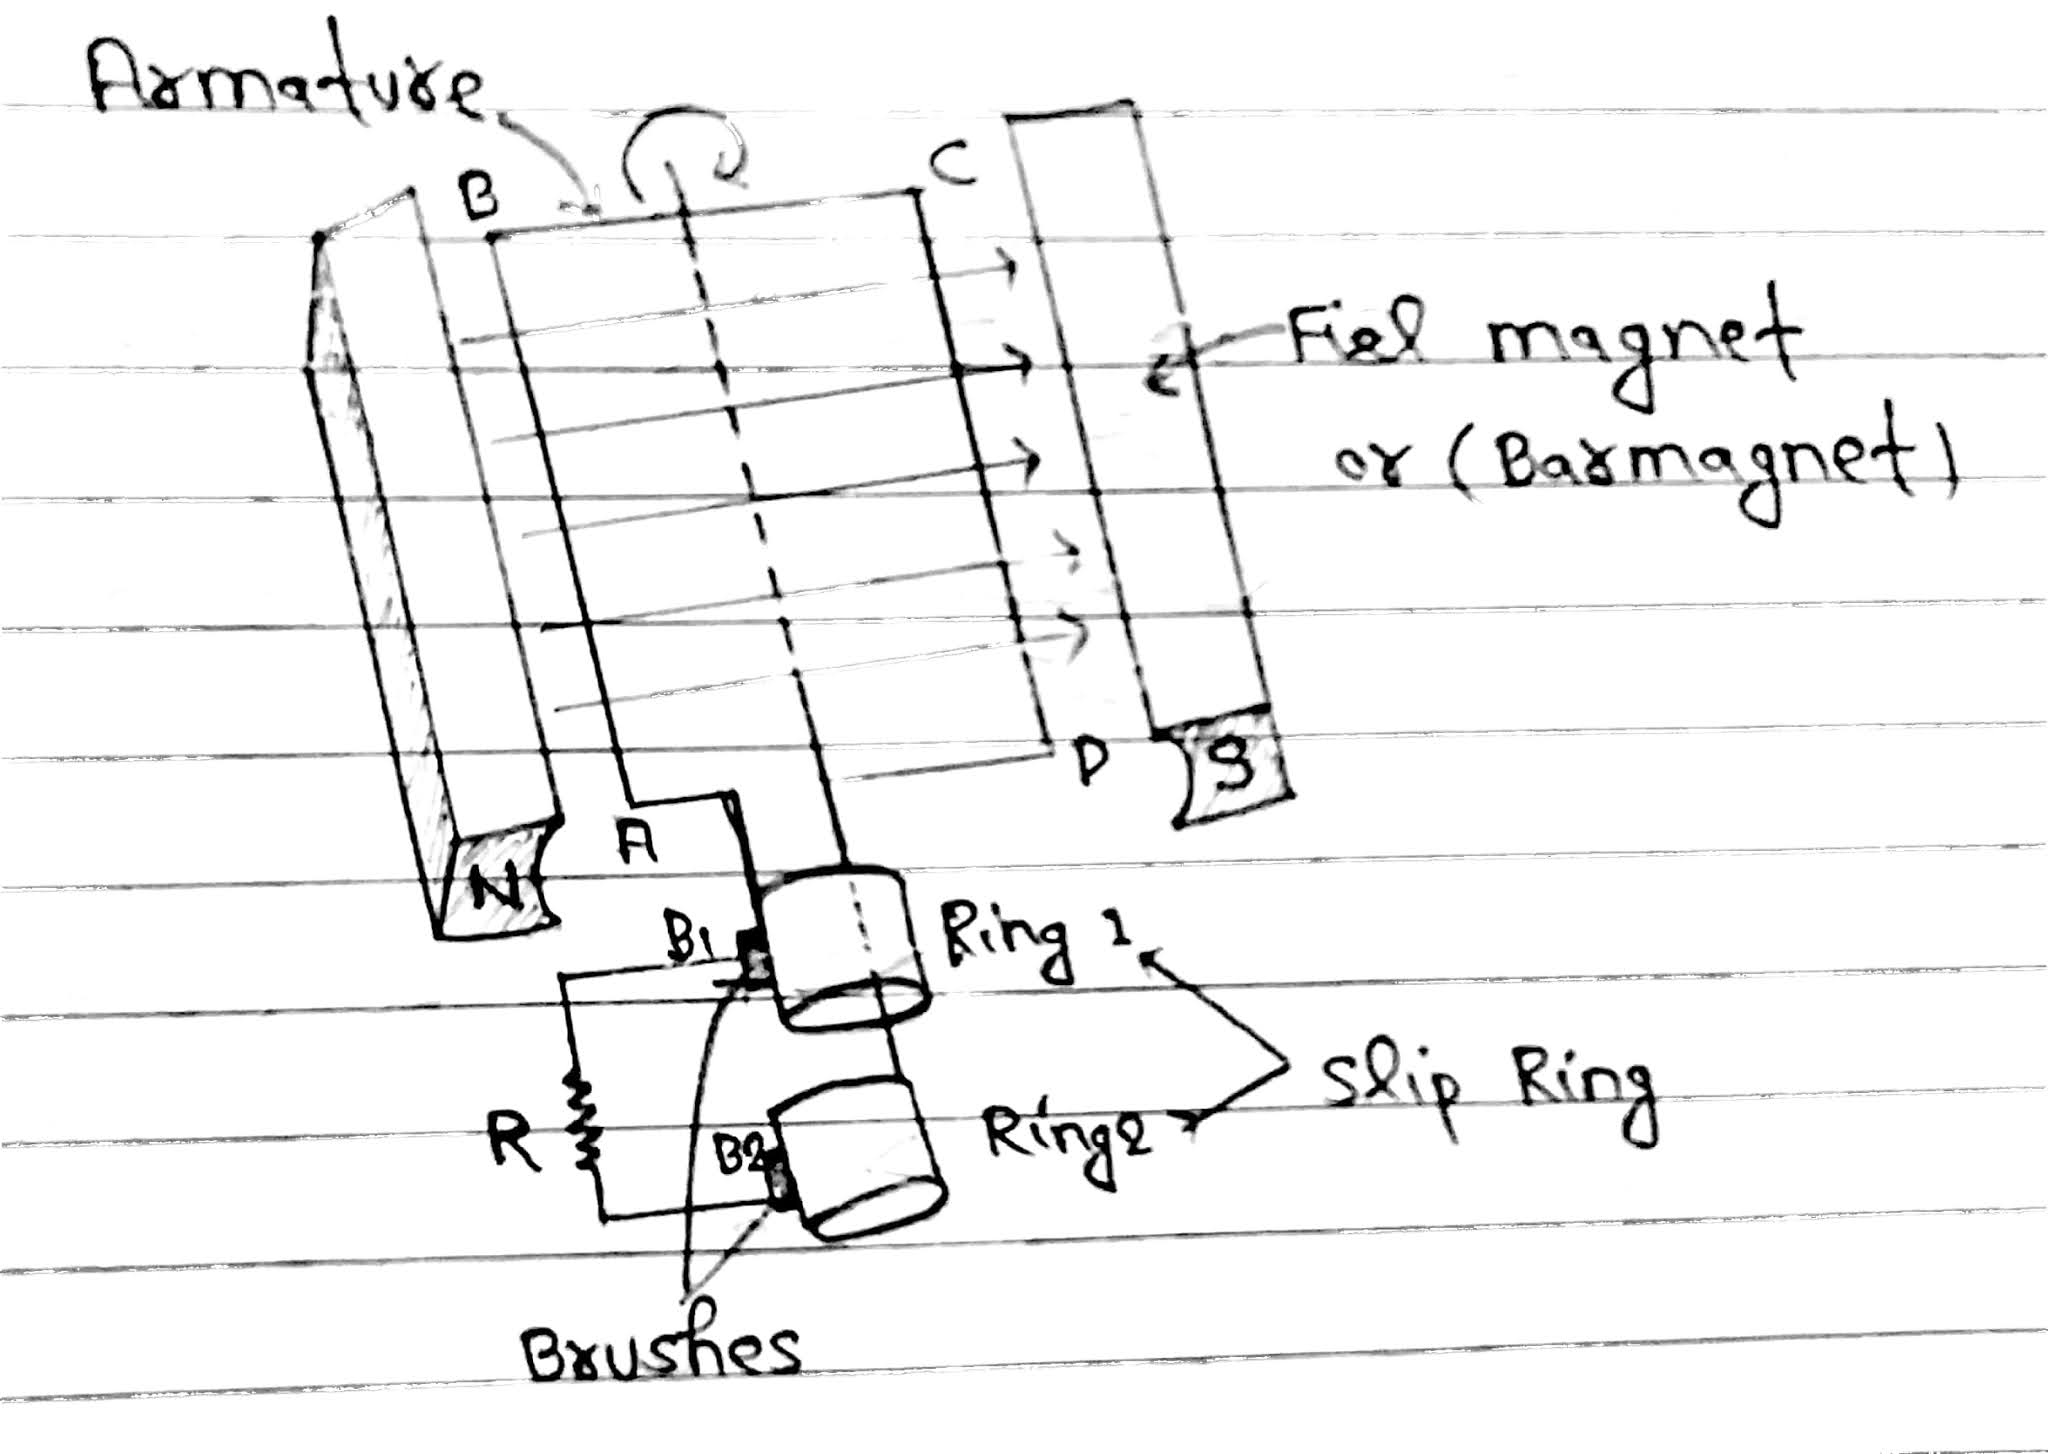 Armature
B
C
Fiel magnet
or (Barmagnet)
D
S
A
N
B1
Ring 1
Slip Ring
R
B2
Ring2
Brushes